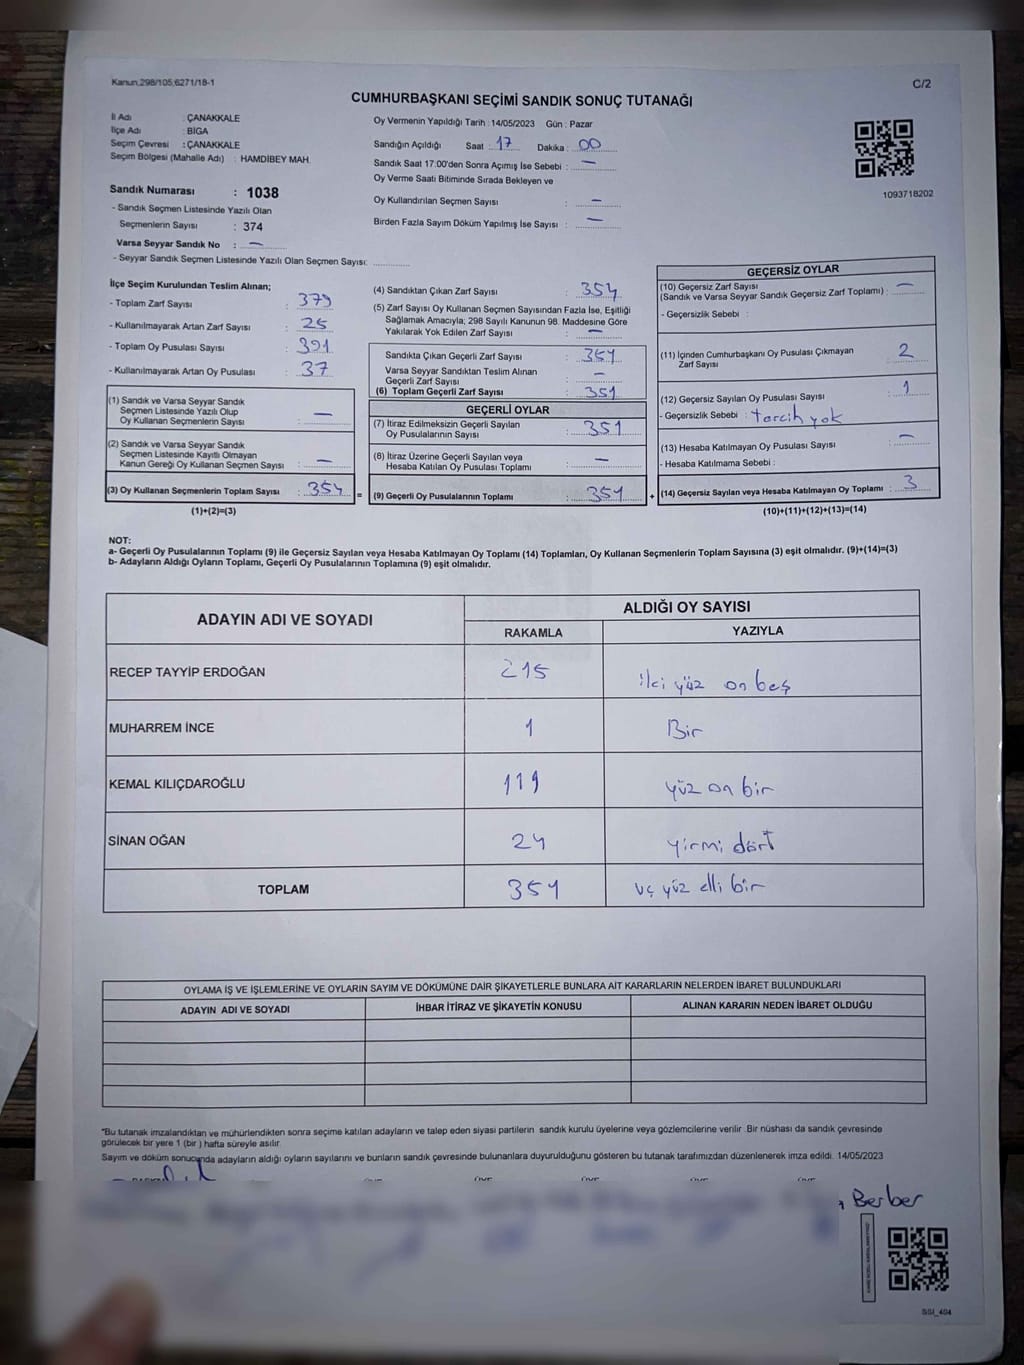 Kanun.298/105;6271/18-1
C/2
CUMHURBAŞKANI SEÇİMİ SANDIK SONUÇ TUTANAĞI
İl Adı : ÇANAKKALE
İlçe Adı : BİGA
Seçim Çevresi : ÇANAKKALE
Seçim Bölgesi (Mahalle Adı) : HAMDİBEY MAH.
Sandık Numarası : 1038
- Sandık Seçmen Listesinde Yazılı Olan
Seçmenlerin Sayısı : 374
Varsa Seyyar Sandık No : —
- Seyyar Sandık Seçmen Listesinde Yazılı Olan Seçmen Sayısı:
Oy Vermenin Yapıldığı Tarih : 14/05/2023 Gün : Pazar
Sandığın Açıldığı Saat : 17 Dakika : 00
Sandık Saat 17.00'den Sonra Açımış İse Sebebi : —
Oy Verme Saati Bitiminde Sırada Bekleyen ve
Oy Kullandırılan Seçmen Sayısı : —
Birden Fazla Sayım Döküm Yapılmış İse Sayısı : —
1093718202
İlçe Seçim Kurulundan Teslim Alınan;
- Toplam Zarf Sayısı : 379
- Kullanılmayarak Artan Zarf Sayısı : 25
- Toplam Oy Pusulası Sayısı : 391
- Kullanılmayarak Artan Oy Pusulası : 37
(1) Sandık ve Varsa Seyyar Sandık
Seçmen Listesinde Yazılı Olup
Oy Kullanan Seçmenlerin Sayısı : —
(2) Sandık ve Varsa Seyyar Sandık
Seçmen Listesinde Kayıtlı Olmayan
Kanun Gereği Oy Kullanan Seçmen Sayısı : —
(3) Oy Kullanan Seçmenlerin Toplam Sayısı : 354
(1)+(2)=(3)
(4) Sandıktan Çıkan Zarf Sayısı : 354
(5) Zarf Sayısı Oy Kullanan Seçmen Sayısından Fazla İse, Eşitliği
Sağlamak Amacıyla; 298 Sayılı Kanunun 98. Maddesine Göre
Yakılarak Yok Edilen Zarf Sayısı : —
Sandıkta Çıkan Geçerli Zarf Sayısı : 354
Varsa Seyyar Sandıktan Teslim Alınan
Geçerli Zarf Sayısı : —
(6) Toplam Geçerli Zarf Sayısı : 351
GEÇERLİ OYLAR
(7) İtiraz Edilmeksizin Geçerli Sayılan
Oy Pusulalarının Sayısı : 351
(8) İtiraz Üzerine Geçerli Sayılan veya
Hesaba Katılan Oy Pusulası Toplamı : —
= (9) Geçerli Oy Pusulalarının Toplamı : 351 +
GEÇERSİZ OYLAR
(10) Geçersiz Zarf Sayısı
(Sandık ve Varsa Seyyar Sandık Geçersiz Zarf Toplamı) : —
- Geçersizlik Sebebi :
(11) İçinden Cumhurbaşkanı Oy Pusulası Çıkmayan
Zarf Sayısı : 2
(12) Geçersiz Sayılan Oy Pusulası Sayısı : 1
- Geçersizlik Sebebi : tercih yok
(13) Hesaba Katılmayan Oy Pusulası Sayısı : —
- Hesaba Katılmama Sebebi :
(14) Geçersiz Sayılan veya Hesaba Katılmayan Oy Toplamı : 3
(10)+(11)+(12)+(13)=(14)
NOT:
a- Geçerli Oy Pusulalarının Toplamı (9) ile Geçersiz Sayılan veya Hesaba Katılmayan Oy Toplamı (14) Toplamları, Oy Kullanan Seçmenlerin Toplam Sayısına (3) eşit olmalıdır. (9)+(14)=(3)
b- Adayların Aldığı Oyların Toplamı, Geçerli Oy Pusulalarının Toplamına (9) eşit olmalıdır.
ADAYIN ADI VE SOYADI
ALDIĞI OY SAYISI
RAKAMLA YAZIYLA
RECEP TAYYİP ERDOĞAN 215 iki yüz on beş
MUHARREM İNCE 1 Bir
KEMAL KILIÇDAROĞLU 111 yüz on bir
SİNAN OĞAN 24 yirmi dört
TOPLAM 351 üç yüz elli bir
OYLAMA İŞ VE İŞLEMLERİNE VE OYLARIN SAYIM VE DÖKÜMÜNE DAİR ŞİKAYETLERLE BUNLARA AİT KARARLARIN NELERDEN İBARET BULUNDUKLARI
ADAYIN ADI VE SOYADI İHBAR İTİRAZ VE ŞİKAYETİN KONUSU ALINAN KARARIN NEDEN İBARET OLDUĞU
"Bu tutanak imzalandıktan ve mühürlendikten sonra seçime katılan adayların ve talep eden siyasi partilerin sandık kurulu üyelerine veya gözlemcilerine verilir .Bir nüshası da sandık çevresinde
görülecek bir yere 1 (bir ) hafta süreyle asılır.
Sayım ve döküm sonucunda adayların aldığı oyların sayılarını ve bunların sandık çevresinde bulunanlara duyurulduğunu gösteren bu tutanak tarafımızdan düzenlenerek imza edildi. 14/05/2023
Berber
SSI_404